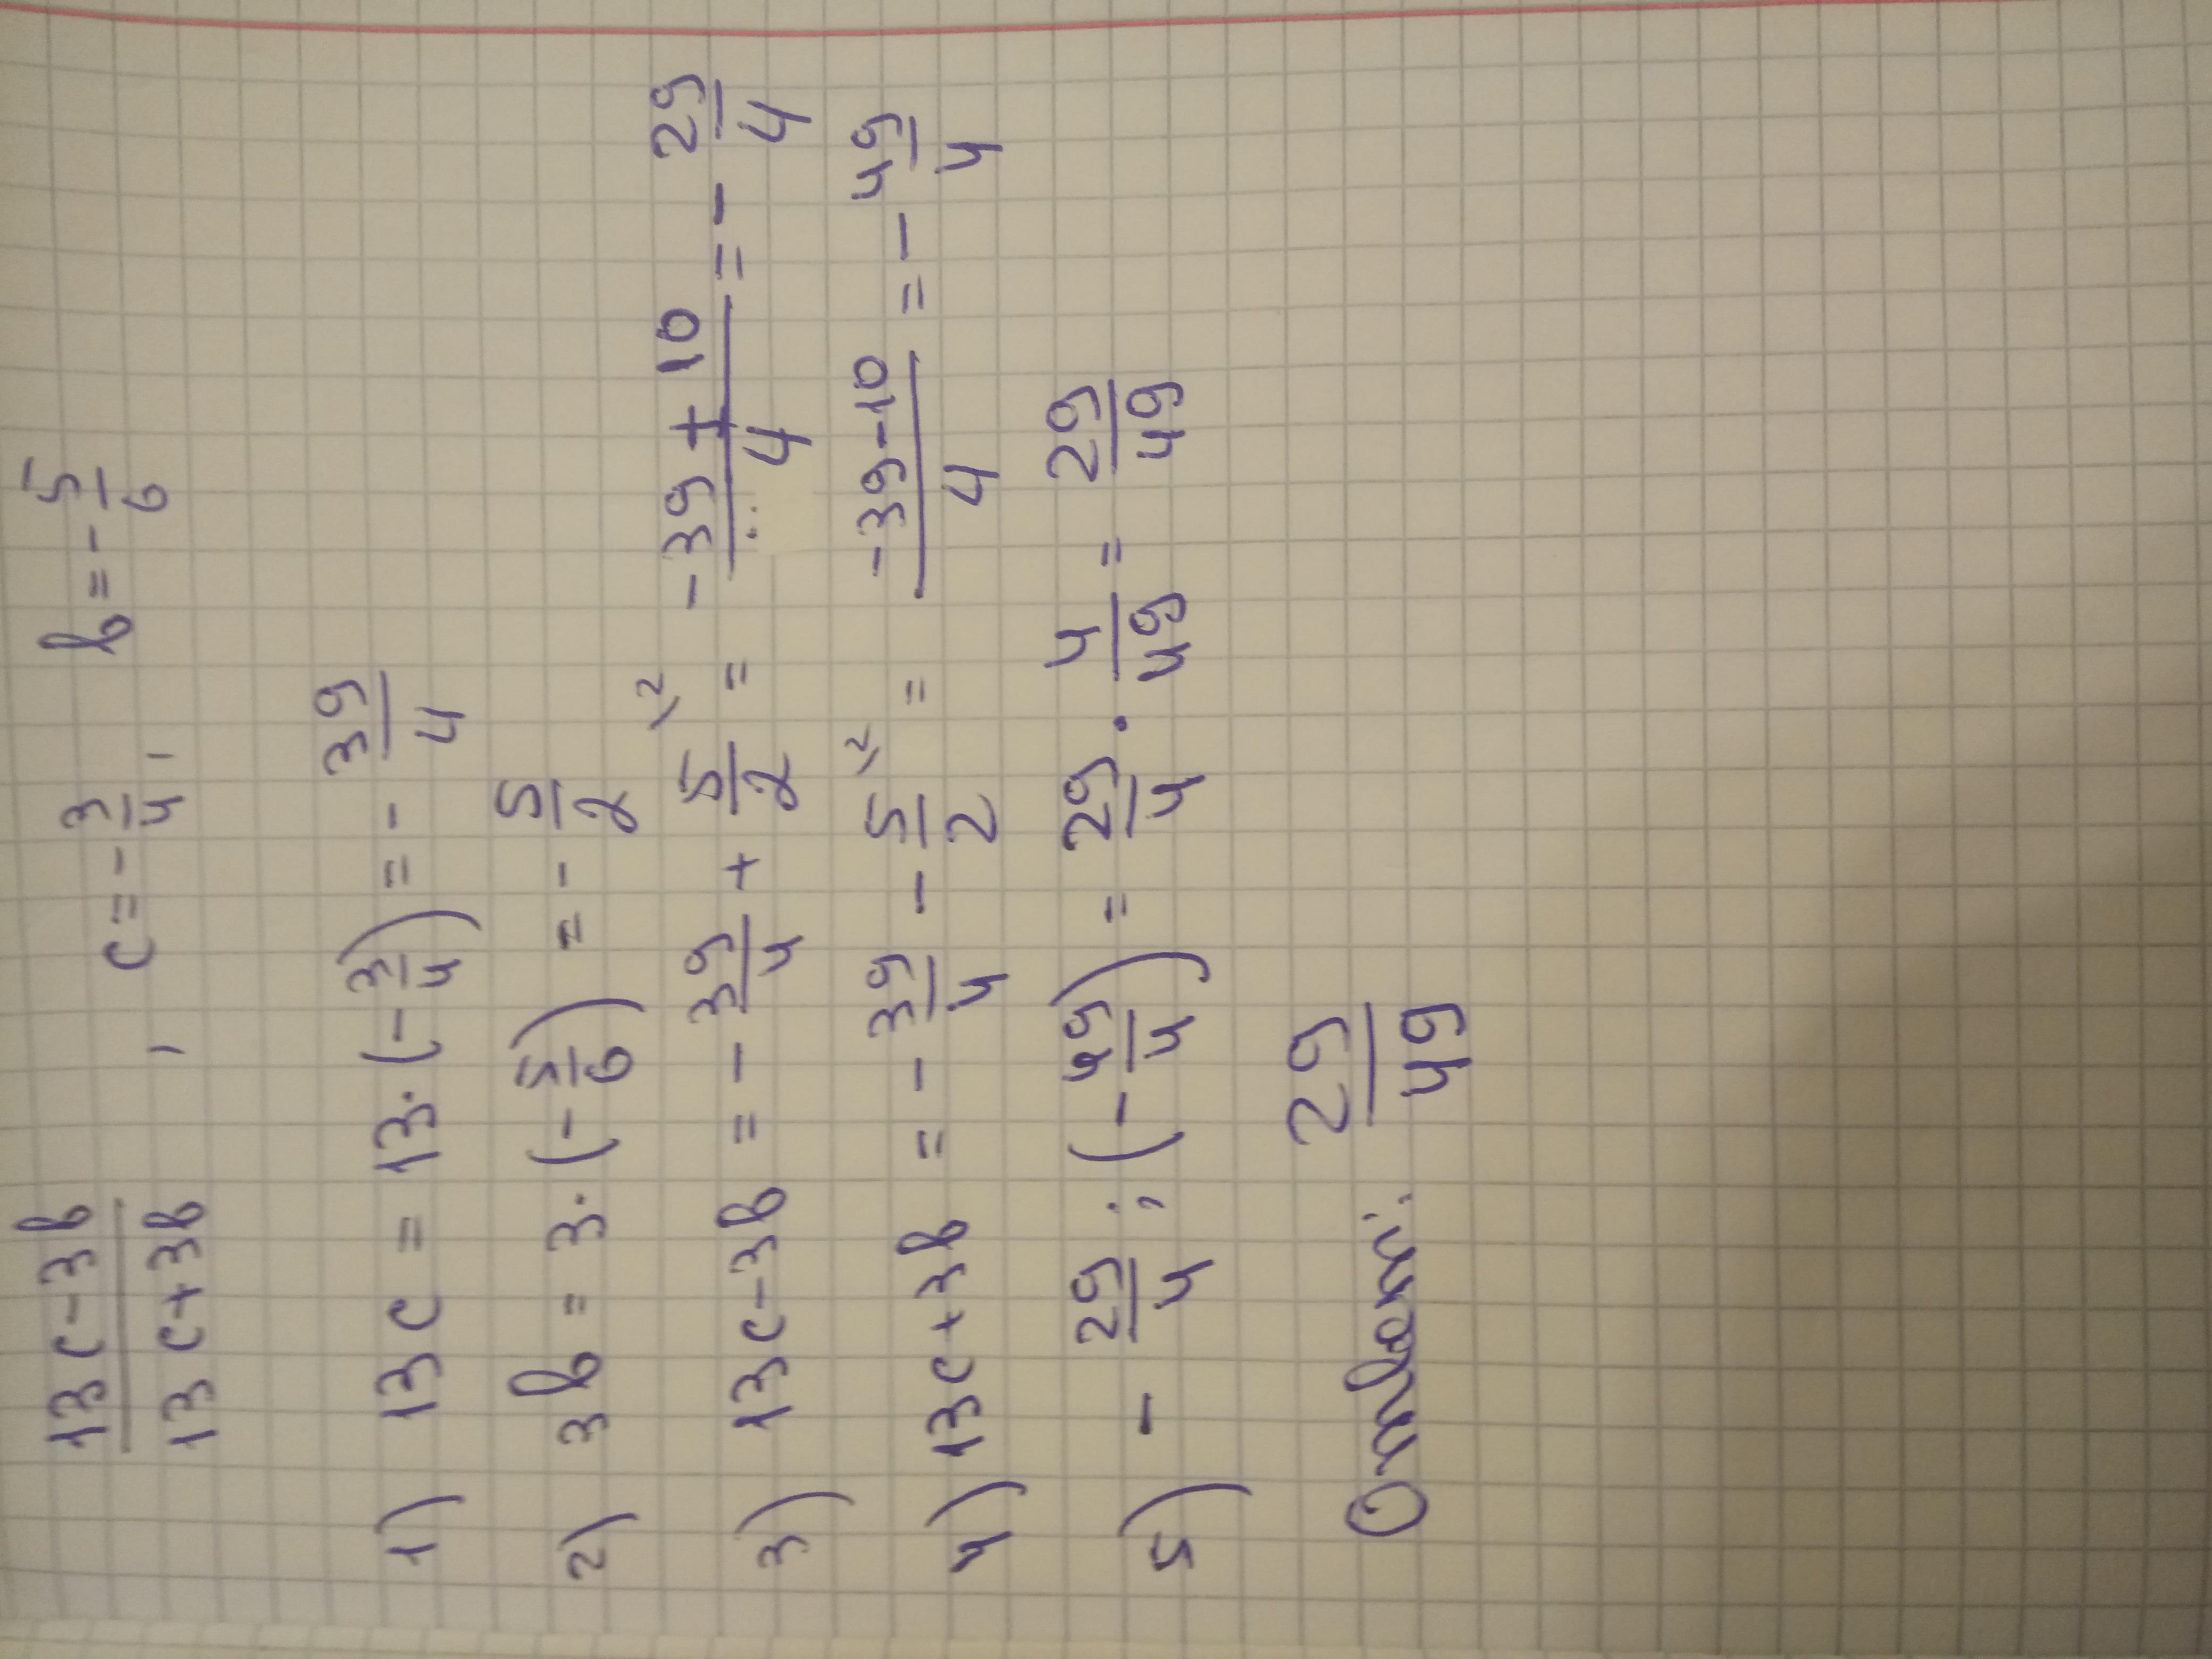 (13c-3b)/(13c+3b), c=-3/4, b=-5/6
1) 13c = 13·(-3/4) = -39/4
2) 3b = 3·(-5/6) = -5/2
3) 13c-3b = -39/4 + 5/2 \2 = (-39+10)/4 = -29/4
4) 13c+3b = -39/4 - 5/2 \2 = (-39-10)/4 = -49/4
5) -29/4 : (-49/4) = 29/4 · 4/49 = 29/49
Ответ: 29/49